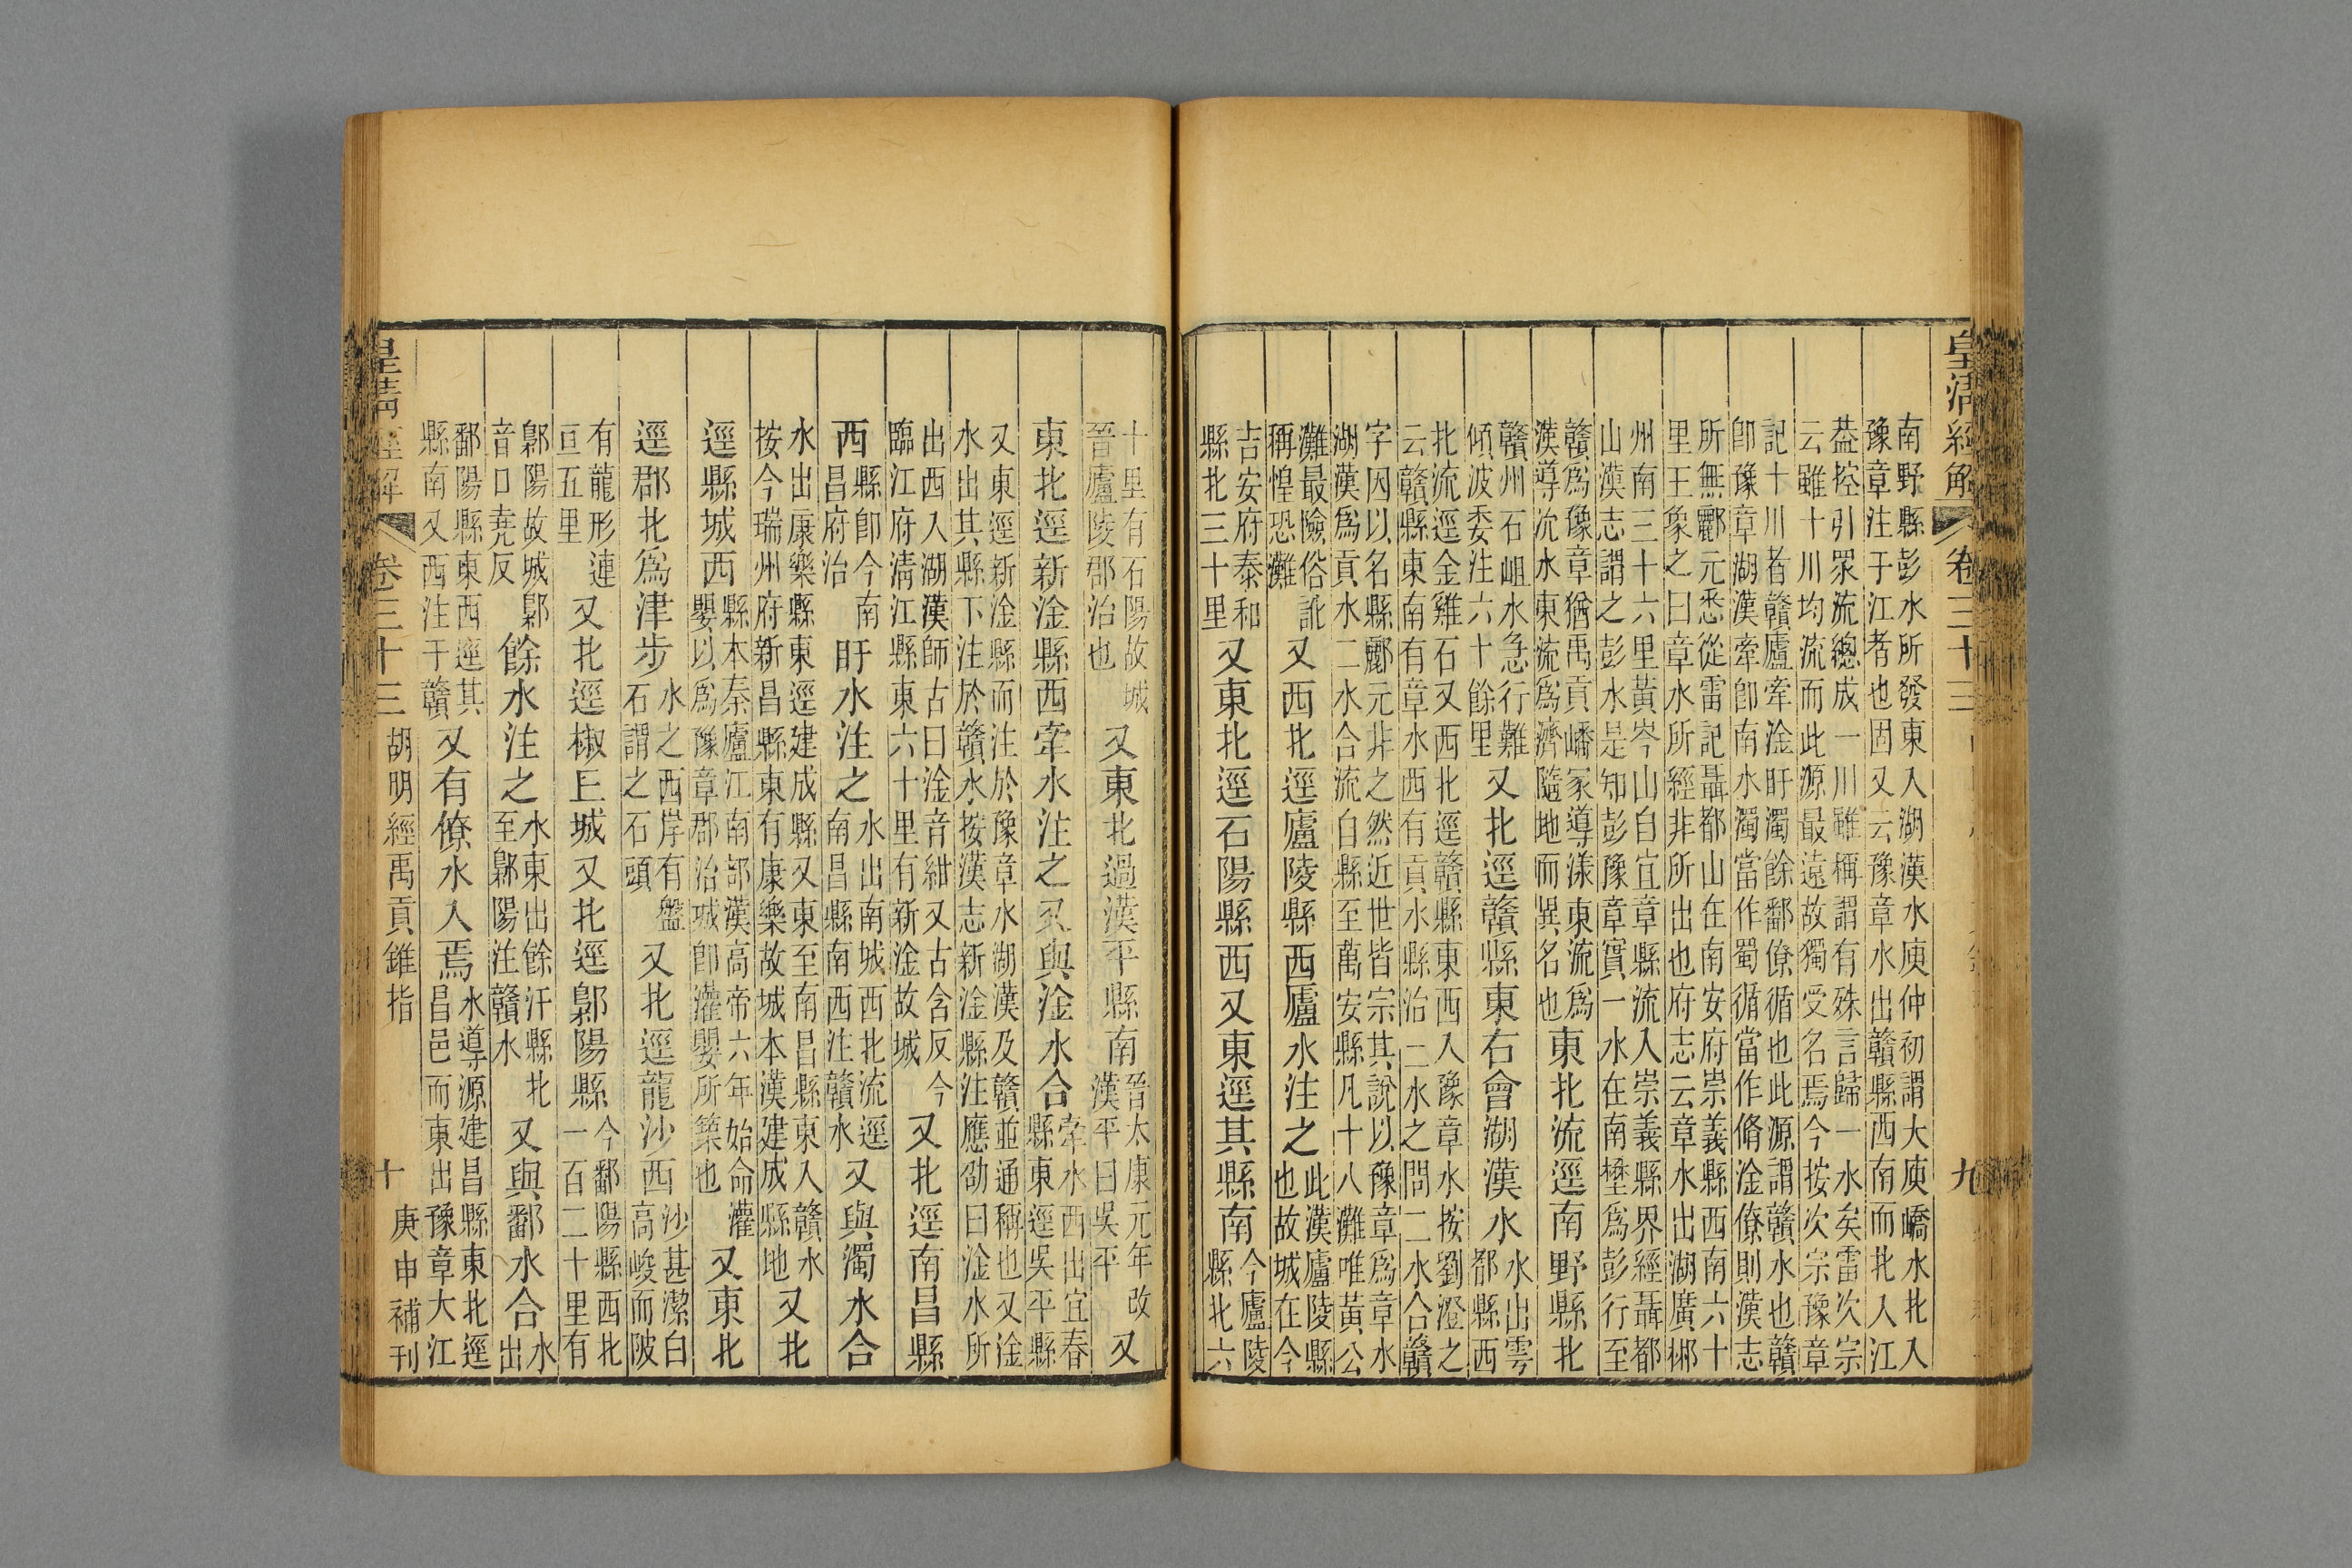 皇清經解 卷三十三 九
南野縣彭水所發東入湖漢水庾仲初謂大庾嶠水北入
豫章注于江者也固又云豫章水出贛縣西南而北入江
葢控引眾流總成一川雖稱謂有殊言歸一水矣雷次宗
云雖十川均流而此源最遠故獨受名焉今按次宗豫章
記十川者贛廬牽淦盱濁餘鄱僚循也此源謂贛水也贛
卽豫章湖漢牽卽南水濁當作蜀循當作脩淦僚則漢志
所無酈元悉從雷記聶都山在南安府崇義縣西南六十
里王象之曰章水所經非所出也府志云章水出湖廣郴
州南三十六里黃岑山白宜章縣流入崇義縣界經聶都
山漢志謂之彭水是知彭豫章實一水在南壄爲彭行至
贛爲豫章猶禹貢嶓冢導漾東流爲
漢導沇水東流爲濟隨地而異名也
東北流逕南野縣北
贛州石岨水急行難
傾波委注六十餘里
又北逕贛縣東右會湖漢水
水出雩
都縣西
北流逕金雞石又西北逕贛縣東西入豫章水按劉澄之
云贛縣東南有章水西有貢水縣治二水之間二水合贛
字因以名縣酈元非之然近世皆宗其說以豫章爲章水
湖漢爲貢水二水合流白縣至萬安縣凡十八灘唯黃公
灘最險俗訛
稱惶恐灘
又西北逕廬陵縣西廬水注之
此漢廬陵縣
也故城在今
吉安府泰和
縣北三十里
又東北逕石陽縣西又東逕其縣南
今廬陵
縣北六
十里有石陽故城
晉廬陵郡治也
又東北過漢平縣南
晉太康元年改
漢平曰吳平
又
東北逕新淦縣西牽水注之又與淦水合
牽水西出宜春
縣東逕吳平縣
又東逕新淦縣而注於豫章水湖漢及贛並通稱也又淦
水出其縣下注於贛水按漢志新淦縣注應劭曰淦水所
出西入湖漢師古曰淦音紺又古含反今
臨江府淸江縣東六十里有新淦故城
又北逕南昌縣
西
縣卽今南
昌府治
盱水注之
水出南城西北流逕
南昌縣南西注贛水
又與濁水合
水出康樂縣東逕建成縣又東至南昌縣東入贛水
按今瑞州府新昌縣東有康樂故城本漢建成縣地
又北
逕縣城西
縣本秦廬江南部漢高帝六年始命灌
嬰以爲豫章郡治城卽灌嬰所築也
又東北
逕郡北爲津步
水之西岸有盤
石謂之石頭
又北逕龍沙西
沙甚潔白
高峻而陂
有龍形連
亘五里
又北逕椒上城又北逕鄡陽縣
今鄱陽縣西北
一百二十里有
鄡陽故城鄡
音口堯反
餘水注之
水東出餘汗縣北
至鄡陽注贛水
又與鄱水合
水
出
鄱陽縣東西逕其
縣南又西注于贛
又有僚水入焉
水導源建昌縣東北逕
昌邑而東出豫章大江
皇清經解 卷三十三 胡明經禹貢錐指 十 庚申補刊